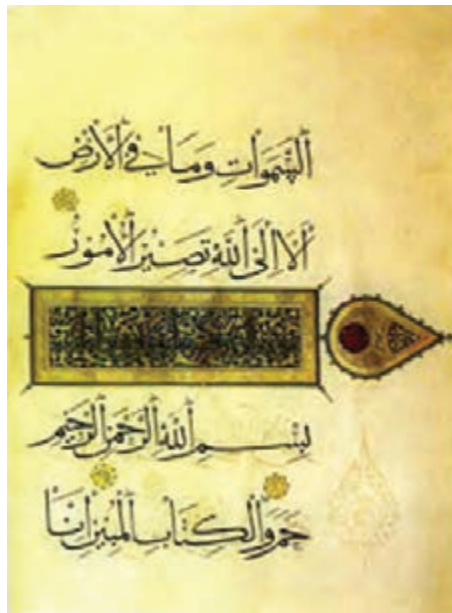 السَّمَوَاتِ وَمَا فِي الْأَرْضِ
أَلَا إِلَى اللَّهِ تَصِيرُ الْأُمُورُ
بِسْمِ اللَّهِ الرَّحْمَنِ الرَّحِيمِ
حم وَالْكِتَابِ الْمُبِينِ إِنَّا